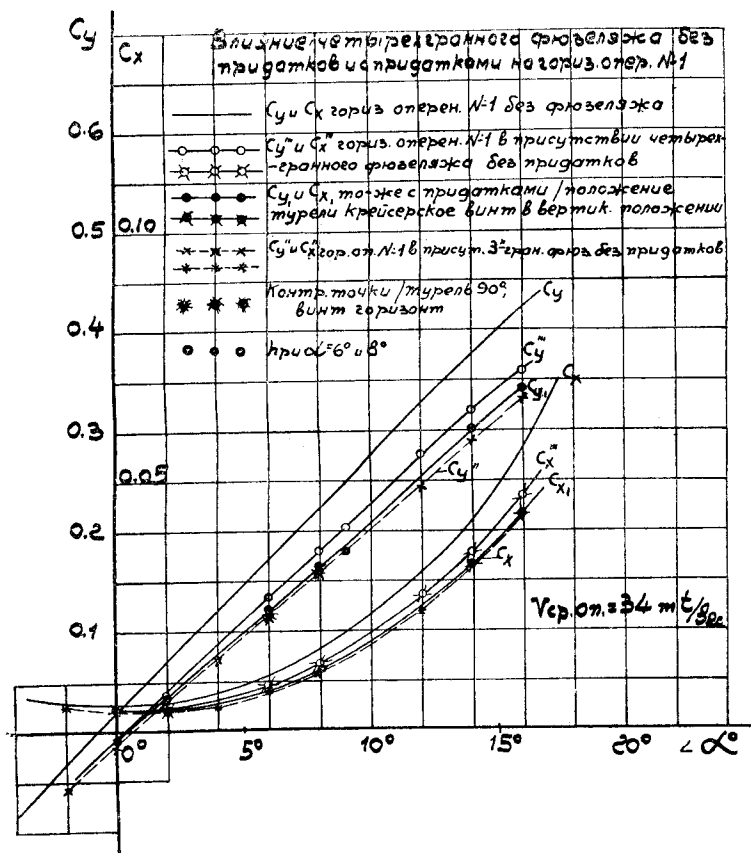 Cy
Cx
Влияние четырехгранного фюзеляжа без
придатков и с придатками на гориз. опер. №1
Cy и Cx гориз оперен. №1 без фюзеляжа
Cy''' и Cx''' гориз. оперен. №1 в присутствии четырех-
-гранного фюзеляжа без придатков
Cy₁ и Cx₁ то-же с придатками / положение
турели крейсерское винт в вертик. положении
Cy'' и Cx'' гор. оп. №1 в присут. 3х гран. фюз без придатков
Контр. точки / турель 90°,
винт горизонт
при α=6° и 8°
0.6
0.5
0.10
0.4
0.3
0.05
0.2
0.1
Cy
Cy'''
Cy₁
Cx
Cy''
Cx'''
Cx₁
Cx
Vср. оп. = 34 mt/sec
0°
5°
10°
15°
20°
∠α°